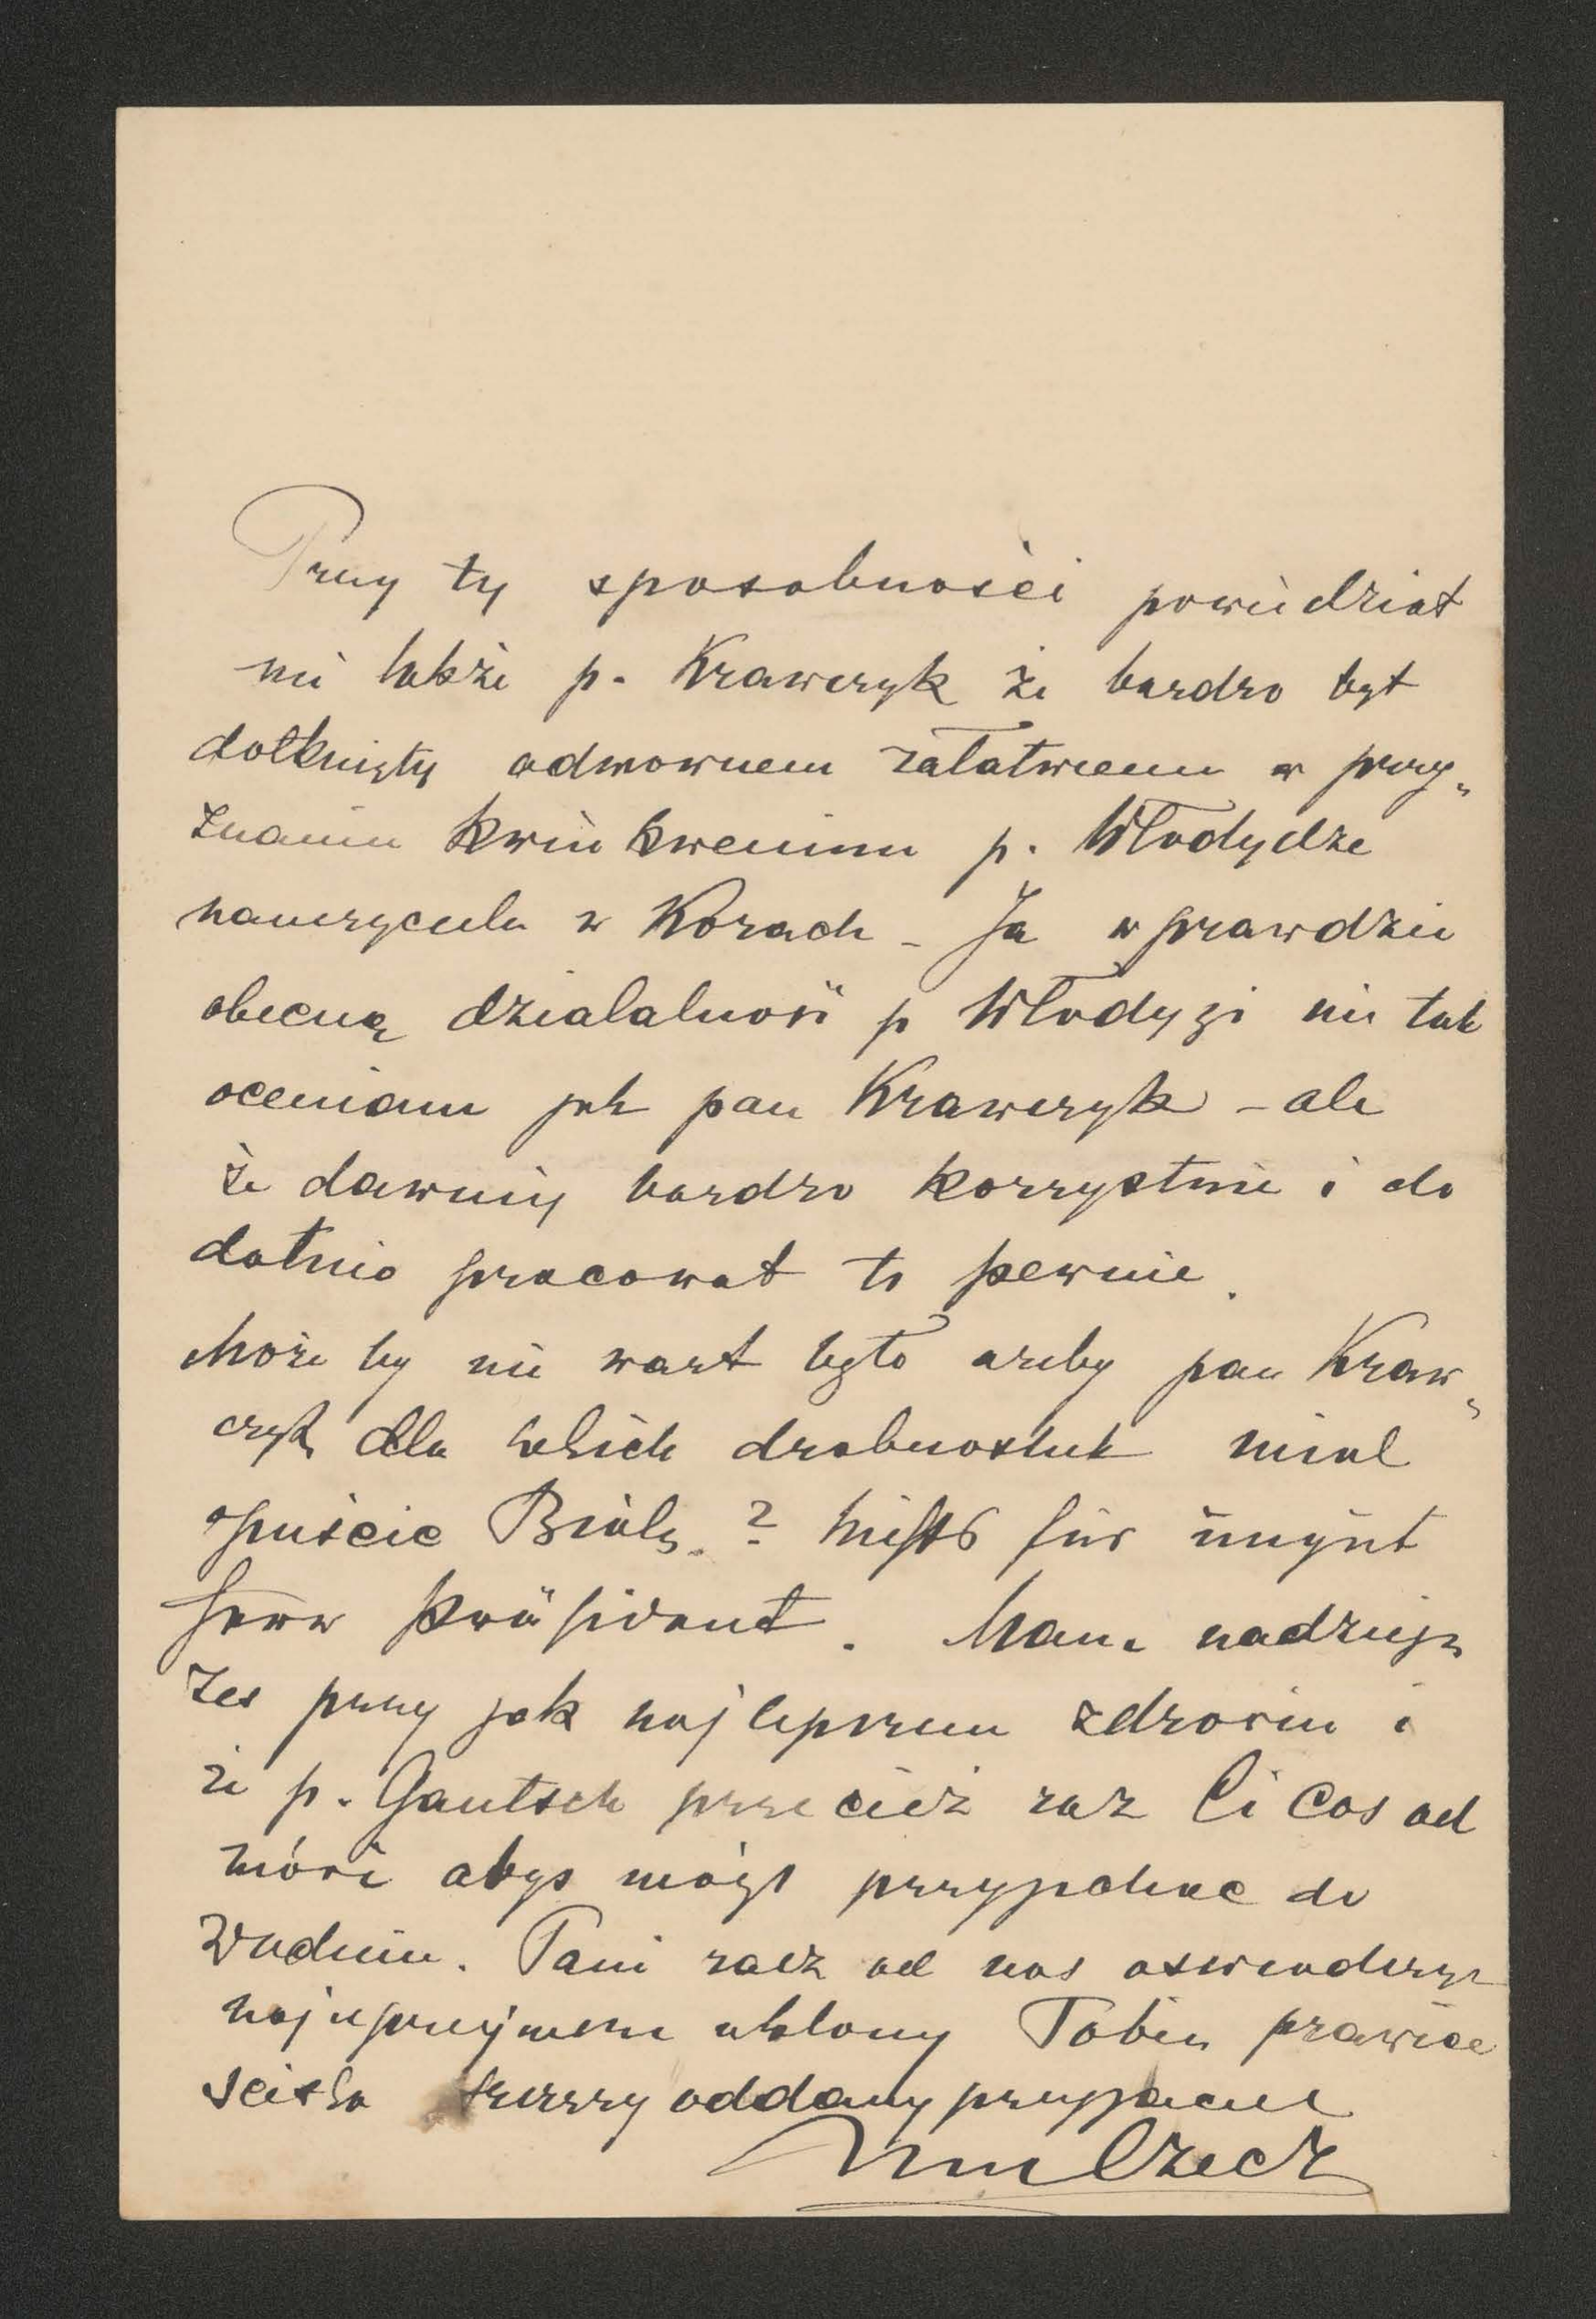 Przy tej sposobności powiedział
mi także p. Krawczyk że bardzo był
dotknięty odmownem załatwieniem w przy„
znaniu kwinkwenium p. Włodydze
nauczycielu w Kozach – Ja wprawdzie
obecną działalność p Włodygi nie tak
oceniam jak pan Krawczyk – ale
że dawniej bardzo korzystnie i do
datnio pracował to pewnie.
Może by nie wart było azeby pan Kraw„
czyk dla takich drobnostek miał
opuścic Białę. ? Nichts für ungut
Herr Präsident. Mam nadzieję
żes przy jak najlepszem zdrowiu i
że p. Gautsch przecież raz Ci Cos od
mówi abys mógł przyjechac do
Wiednia. Pani racz od nas oswiadczyc
najuprzejmeni ukłony Tobie prawice
sciska szczerzy oddany przyjaciel
Czecz